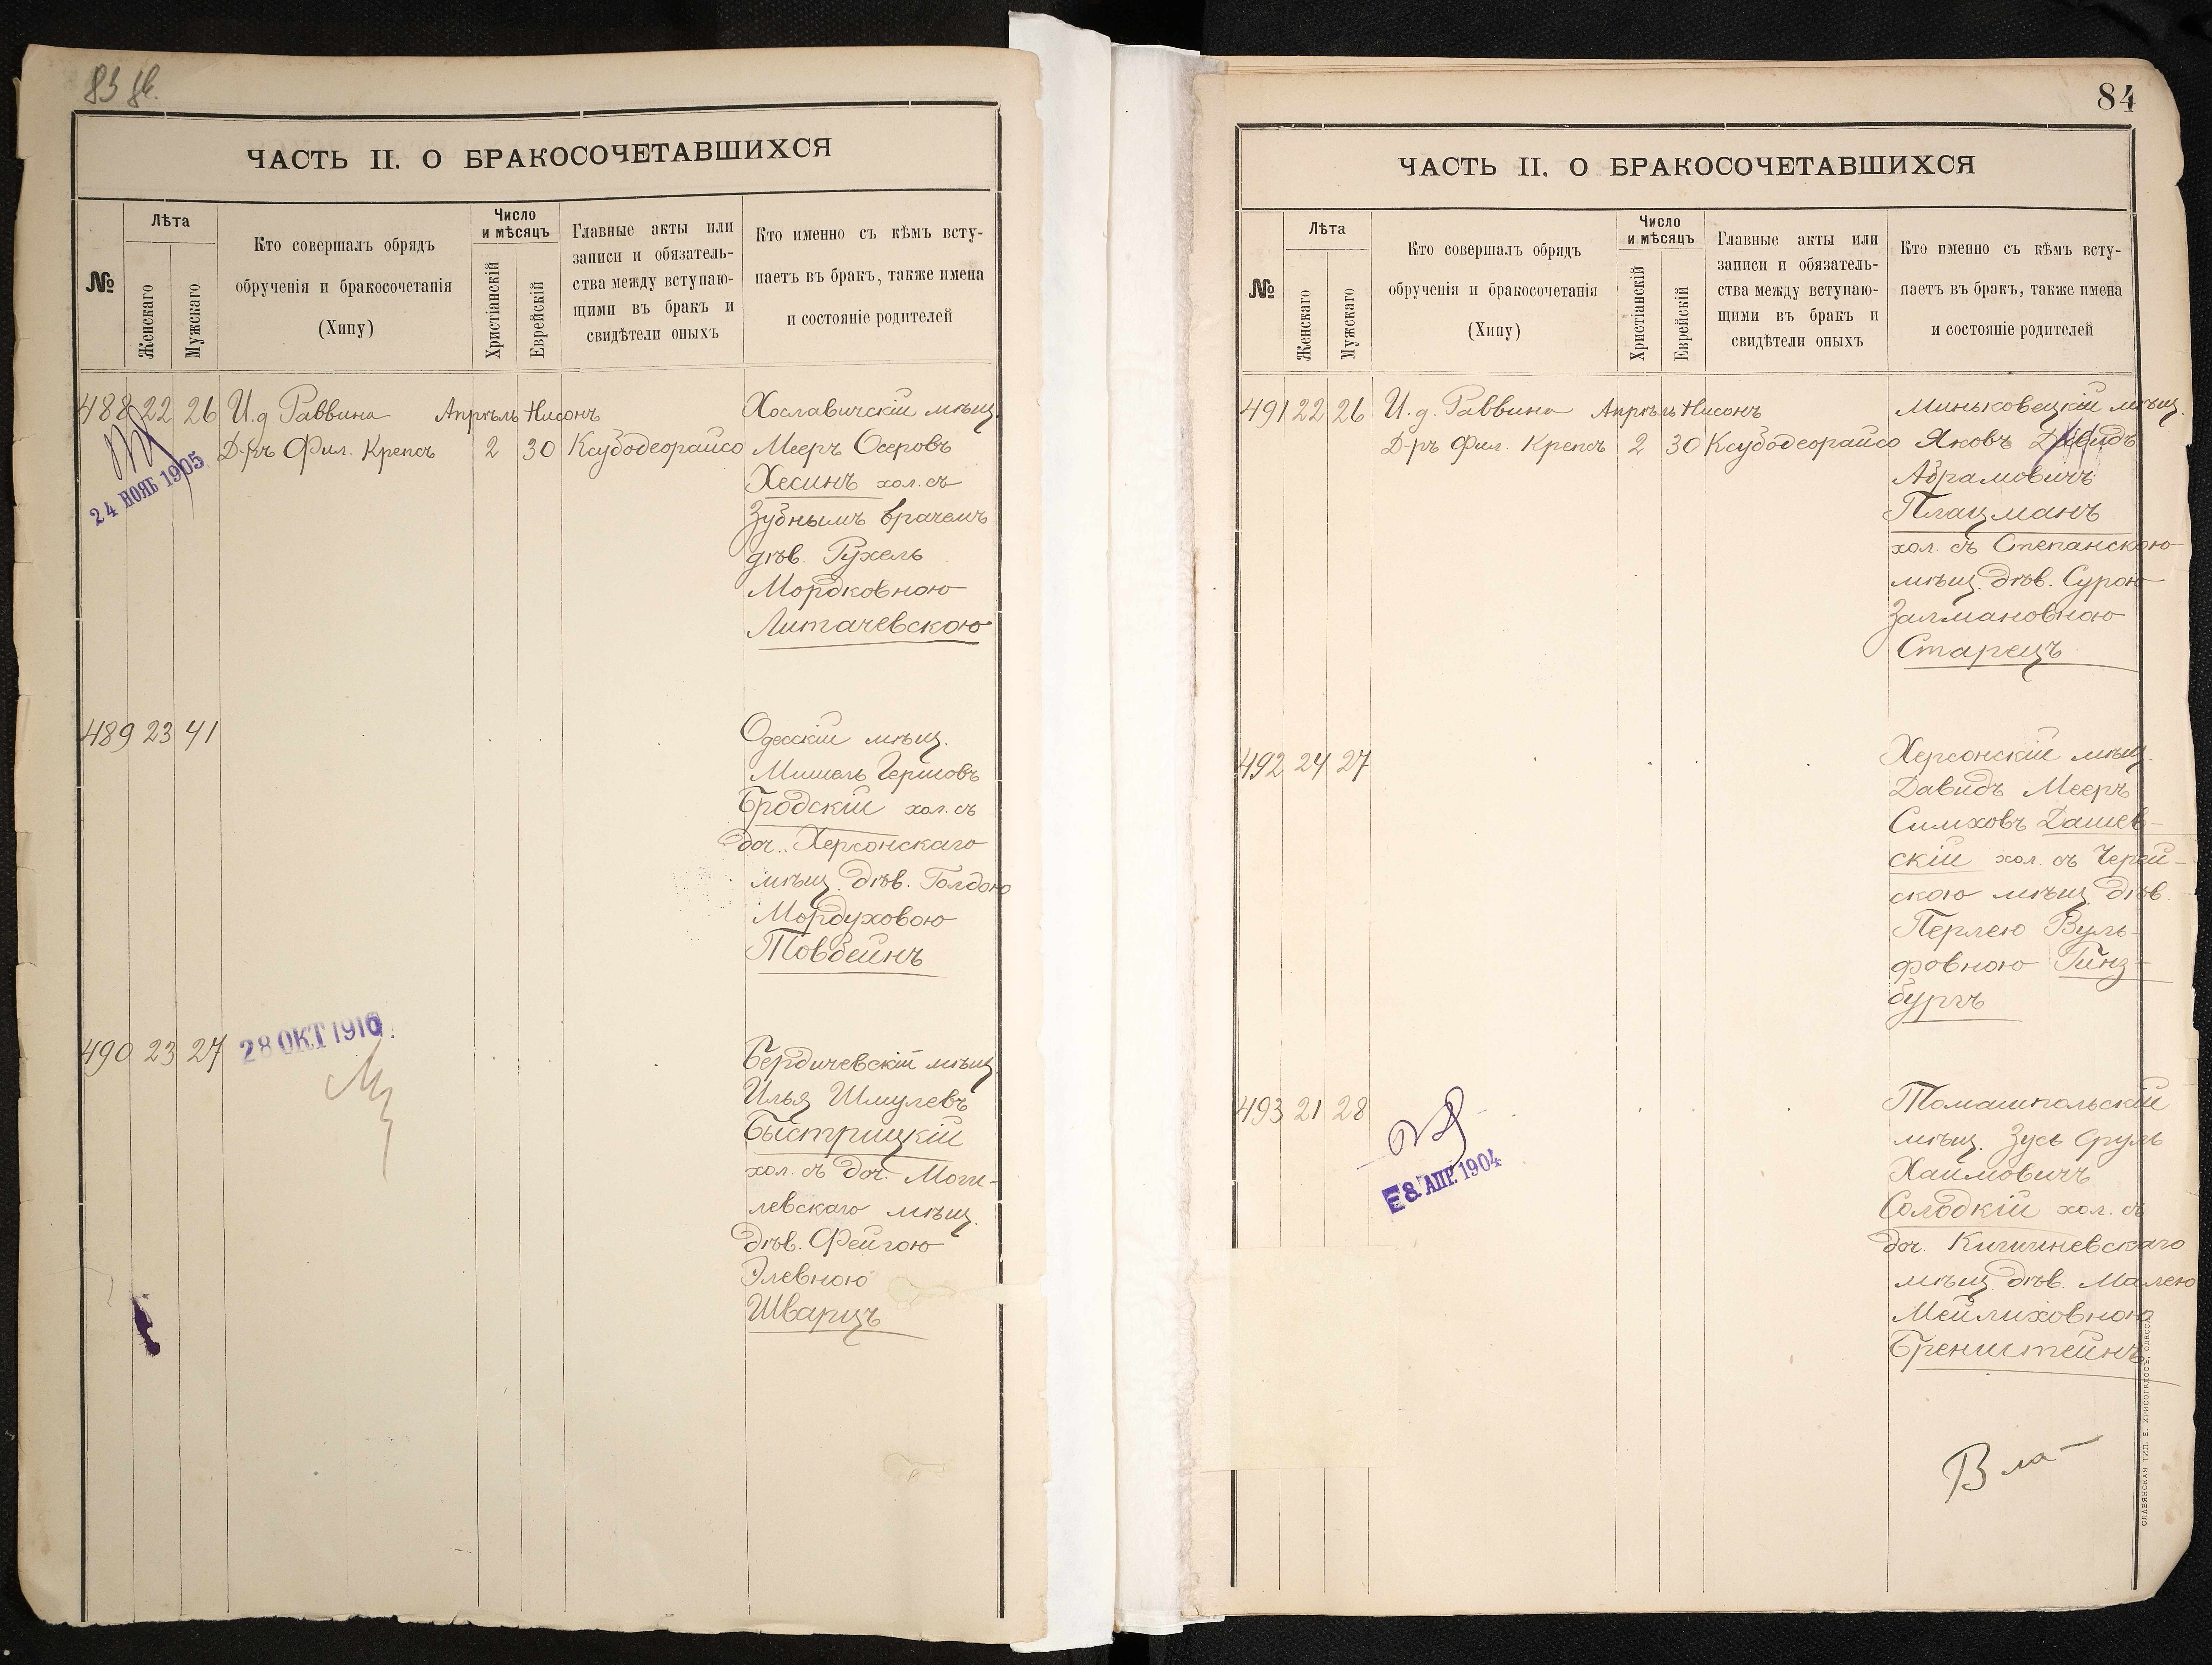 ЧАСТЬ II. О БРАКОСОЧЕТАВШИХСЯ
№
Лѣта
Женскаго
Мужскаго
Кто совершалъ обрядъ
обрученія и бракосочетанія
(Хипу)
Число
и мѣсяцъ
Христіанскій
Еврейскій
Главные акты или
записи и обязатель-
ства между вступаю-
щими въ бракъ и
свидѣтели оныхъ
Кто именно съ кѣмъ всту-
паетъ въ бракъ, также имена
и состояніе родителей
488 22 26 И.д. Раввина Апрѣль Нисонъ
Д-ръ Фил. Крепсъ 2 30 Ксубодеорайсо
Хославичскій мѣщ.
Мееръ Осеровъ
Хесинъ хол. съ
Зубнымъ врачемъ
дѣв. Рухель
Мордковною
Литачевскою
24 НОЯБ 1905
489 23 41
Одесскій мѣщ.
Мишель Гершовъ
Бродскій хол. съ
доч. Херсонскаго
мѣщ. дѣв. Голдою
Мордуховою
Товбейнъ
490 23 27
28 ОКТ 1916.
Бердичевскій мѣщ.
Илья Шмулевъ
Быстрицкій
хол. съ доч. Моги-
левскаго мѣщ.
дѣв. Фейгою
Элевною
Шварцъ
84
ЧАСТЬ II. О БРАКОСОЧЕТАВШИХСЯ
№
Лѣта
Женскаго
Мужскаго
Кто совершалъ обрядъ
обрученія и бракосочетанія
(Хипу)
Число
и мѣсяцъ
Христіанскій
Еврейскій
Главные акты или
записи и обязатель-
ства между вступаю-
щими въ бракъ и
свидѣтели оныхъ
Кто именно съ кѣмъ всту-
паетъ въ бракъ, также имена
и состояніе родителей
491 22 26 И.д. Раввина Апрѣль Нисонъ
Д-ръ Фил. Крепсъ 2 30 Ксубодеорайсо
Миньковецкій мѣщ.
Яковъ Давидъ
Абрамовичъ
Плацманъ
хол. съ Степанскою
мѣщ. дѣв. Сурою
Залмановною
Старецъ
492 24 27
Херсонскій мѣщ.
Давидъ Мееръ
Симховъ Дашев-
скій хол. съ Черей-
скою мѣщ. дѣв.
Перлею Вуль-
фовною Гинз-
бургъ
493 21 28
8 АПР. 1904
Томашпольскій
мѣщ. Зусь Сруль
Хаимовичъ
Солодкій хол. съ
доч. Кишиневскаго
мѣщ. дѣв. Малею
Мейлиховною
Бренштейнъ
СЛАВЯНСКАЯ ТИП. Е. ХРИСОГЕЛОСЪ, ОДЕССА